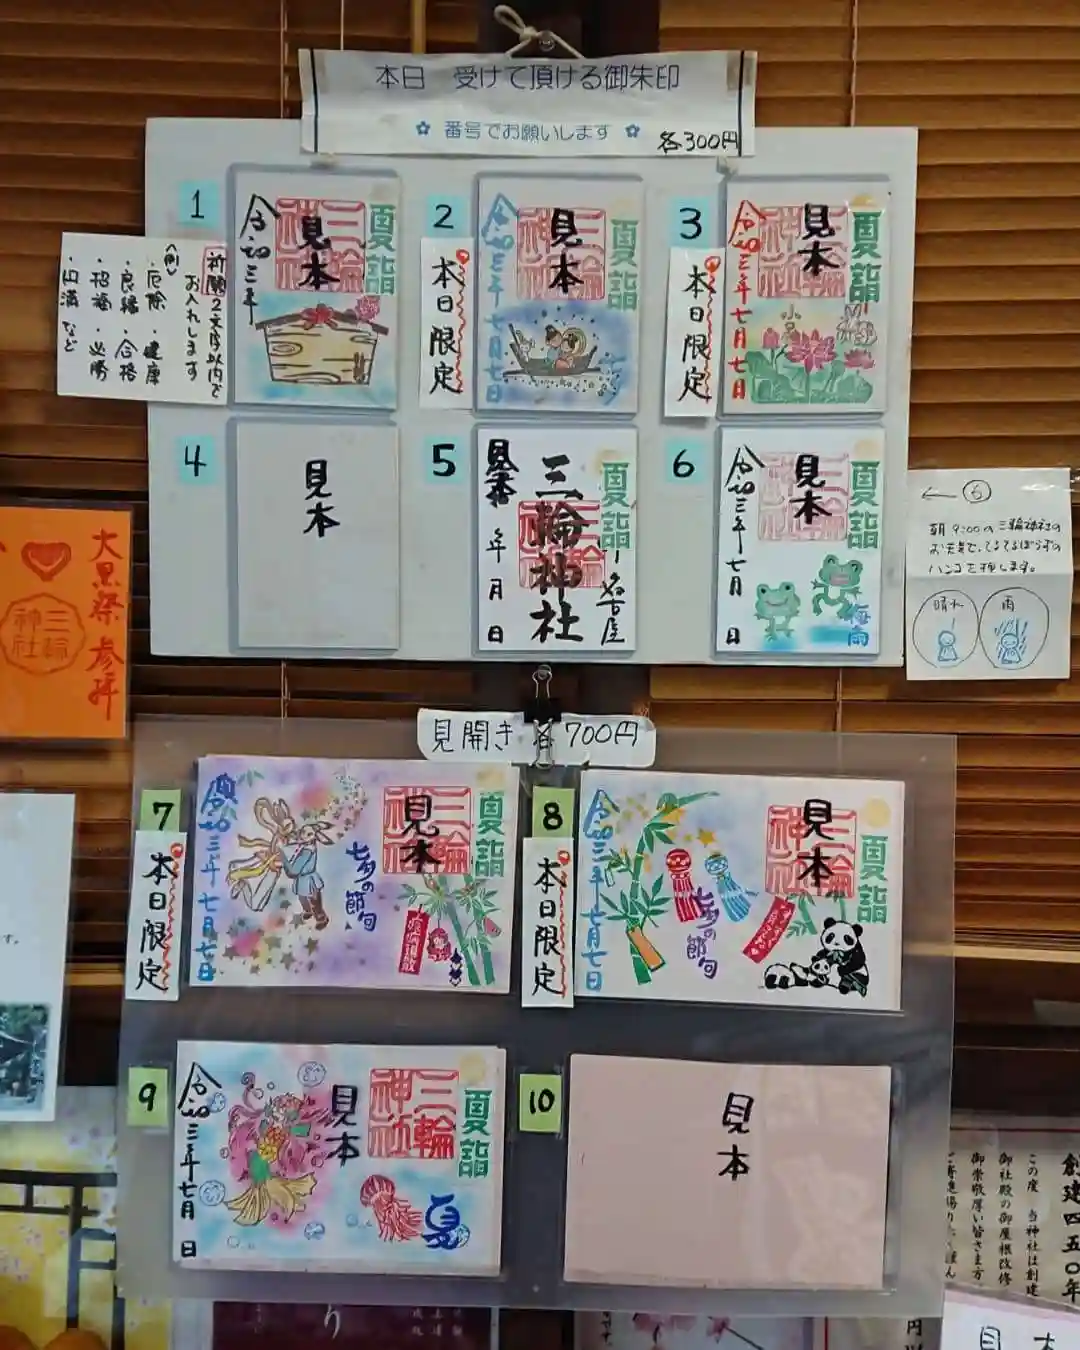 本日 受けて頂ける御朱印
✿ 番号でお願いします ✿
各300円
1
令和三年
見本
三輪神社
夏詣
祈願2文字以内で
お入れします
(例)
・厄除 ・健康
・良縁 ・合格
・招福 ・必勝
・円満 など
2
本日限定
令和三年七月七日
見本
三輪神社
夏詣
3
本日限定
令和三年七月七日
見本
三輪神社
夏詣
小暑
4
見本
5
見本
年 月 日
三輪神社
夏詣
名古屋
6
令和三年七月 日
見本
三輪神社
夏詣
梅雨
← ⑥
朝9:00の三輪神社の
お天気で、てるてるぼうずの
ハンコを押します。
晴れ
雨
大黒祭 参拝
三輪神社
見開き 各700円
7
本日限定
令和三年七月七日
七夕の節句
見本
三輪神社
夏詣
8
本日限定
令和三年七月七日
七夕の節句
見本
三輪神社
夏詣
9
令和三年七月 日
見本
三輪神社
夏詣
夏
10
見本
す。
創建四五〇年
この度 当神社は創建
御社殿の御屋根改修
御崇敬厚い皆さま方
り
円以
見本